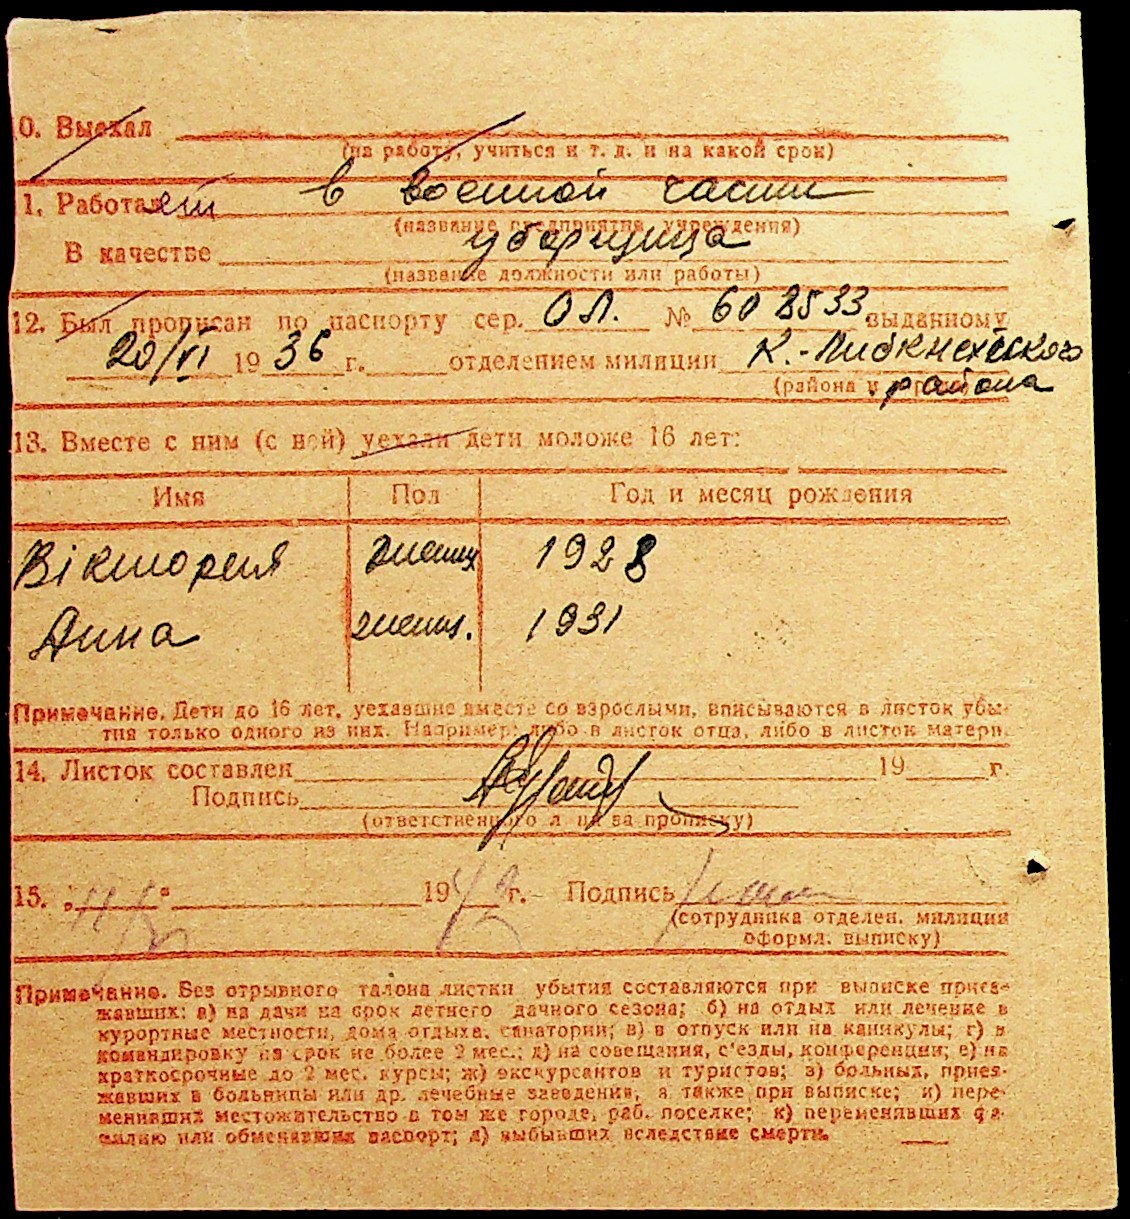 0. Выехал
(на работу, учиться и т. д. и на какой срок)
1. Работает в военной части
(название предприятия, учреждения)
В качестве уборщица
(название должности или работы)
12. Был прописан по паспорту сер. ОЛ. № 608533 выданному
20/VI 1936 г. отделением милиции К.-Либкнехтского
(района и района
13. Вместе с ним (с ней) уехали дети моложе 16 лет:
Имя Пол Год и месяц рождения
Вікторея женщ 1928
Анна женщ. 1931
Примечание. Дети до 16 лет, уехавшие вместе со взрослыми, вписываются в листок убы-
тия только одного из них. Например: либо в листок отца, либо в листок матери.
14. Листок составлен 19 г.
Подпись
(ответственного лица за прописку)
15. „ " 19 г. Подпись
(сотрудника отделен. милиции
оформл. выписку)
Примечание. Без отрывного талона листки убытия составляются при выписке приез-
жавших: а) на дачи на срок летнего дачного сезона; б) на отдых или лечение в
курортные местности, дома отдыха, санатории; в) в отпуск или на каникулы; г) в
командировку на срок не более 2 мес.; д) на совещания, с'езды, конференции; е) на
краткосрочные до 2 мес. курсы; ж) экскурсантов и туристов; з) больных, приез-
жавших в больницы или др. лечебные заведения, а также при выписке; и) пере-
менивших местожительство в том же городе, раб. поселке; к) переменивших фа-
милию или обменявших паспорт; л) выбывших вследствие смерти.